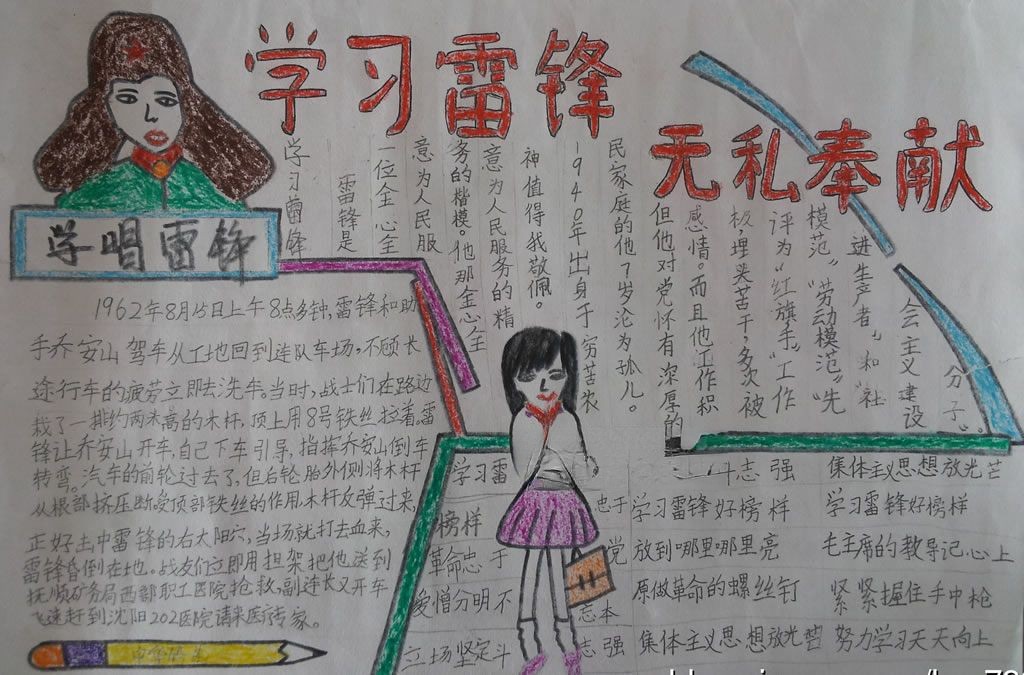 学习雷锋
无私奉献
学唱雷锋
学习雷锋
雷锋是
一位全心全
意为人民服
务的楷模。他那全心全
意为人民服务的精
神值得我敬佩。
1940年出身于穷苦农
民家庭的他7岁沦为孤儿。
但他对党怀有深厚的
感情。而且他工作积
极埋头苦干,多次被
评为“红旗手”“工作
模范”“劳动模范”“先
进生产者”和“社
会主义建设
分子”。
1962年8月15日上午8点多钟,雷锋和助
手乔安山驾车从工地回到连队车场,不顾长
途行车的疲劳立即去洗车。当时,战士们在路边
栽了一排约两米高的木杆,顶上用8号铁丝拉着,雷
锋让乔安山开车,自己下车引导,指挥乔安山倒车
转弯。汽车的前轮过去了,但后轮胎外侧将木杆
从根部挤压断,受顶部铁丝的作用,木杆反弹过来,
正好击中雷锋的右太阳穴,当场就打出血来,
雷锋昏倒在地。战友们立即用担架把他送到
抚顺矿务局西部职工医院抢救,副连长又开车
飞速赶到沈阳202医院请来医疗专家。
学习雷 斗志强 集体主义思想放光芒
榜样 忠于 学习雷锋好榜样 学习雷锋好榜样
革命忠于 党 放到哪里哪里亮 毛主席的教导记心上
爱憎分明不 忘本 原做革命的螺丝钉 紧紧握住手中枪
立场坚定斗 志强 集体主义思想放光芒 努力学习天天向上